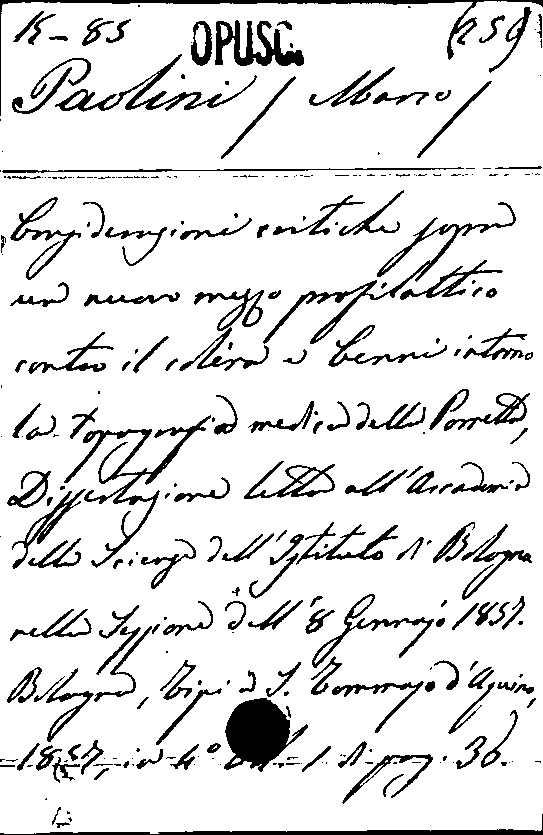 15-85 OPUSC. (259)
Paolini / Marco /
Considerazioni critiche sopra
un nuovo mezzo profilattico
contro il coléra e Cenni intorno
la topografia medica della Porretta,
Dissertazione letta all'Accademia
delle Scienze dell'Istituto di Bologna
nella Sessione dell'8 Gennajo 1857.
Bologna, Tipi di S. Tommaso d'Aquino,
1857, in 4° di pag. 36.